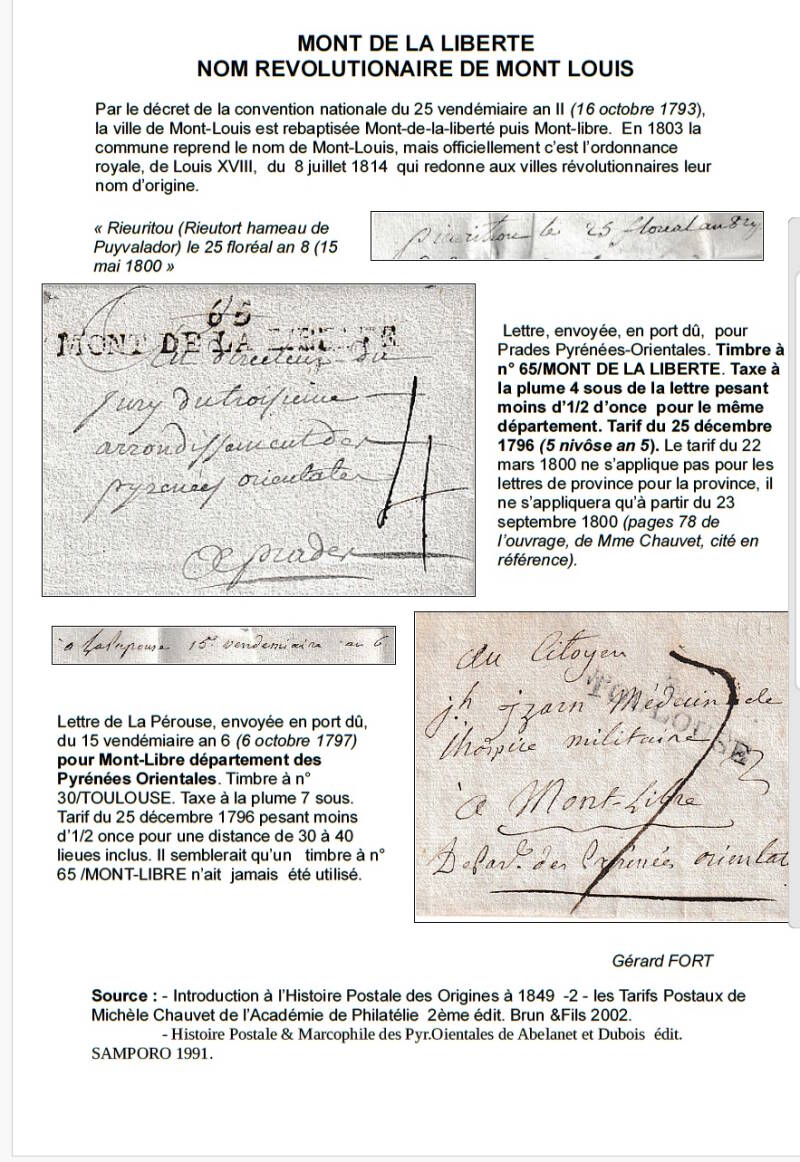 MONT DE LA LIBERTE
NOM REVOLUTIONAIRE DE MONT LOUIS
Par le décret de la convention nationale du 25 vendémiaire an II (16 octobre 1793),
la ville de Mont-Louis est rebaptisée Mont-de-la-liberté puis Mont-libre. En 1803 la
commune reprend le nom de Mont-Louis, mais officiellement c'est l'ordonnance
royale, de Louis XVIII, du 8 juillet 1814 qui redonne aux villes révolutionnaires leur
nom d'origine.
« Rieuritou (Rieutort hameau de
Puyvalador) le 25 floréal an 8 (15
mai 1800 »
le 25 floreal an 8
65
MONT DE LA LIBERTE
Au directeur du
jury du troisieme
arrondissement des
pyrenées orientales
A prades
4
Lettre, envoyée, en port dû, pour
Prades Pyrénées-Orientales. Timbre à
n° 65/MONT DE LA LIBERTE. Taxe à
la plume 4 sous de la lettre pesant
moins d'1/2 d'once pour le même
département. Tarif du 25 décembre
1796 (5 nivôse an 5). Le tarif du 22
mars 1800 ne s'applique pas pour les
lettres de province pour la province, il
ne s'appliquera qu'à partir du 23
septembre 1800 (pages 78 de
l'ouvrage, de Mme Chauvet, cité en
référence).
a 15 vendemiaire an 6
Lettre de La Pérouse, envoyée en port dû,
du 15 vendémiaire an 6 (6 octobre 1797)
pour Mont-Libre département des
Pyrénées Orientales. Timbre à n°
30/TOULOUSE. Taxe à la plume 7 sous.
Tarif du 25 décembre 1796 pesant moins
d'1/2 once pour une distance de 30 à 40
lieues inclus. Il semblerait qu'un timbre à n°
65 /MONT-LIBRE n'ait jamais été utilisé.
Au Citoyen
TOULOUSE
7
jh jzarn Médecin de
l'hospice militaire
à Mont-Libre
Depart. des Pyrénées orientales
Gérard FORT
Source : - Introduction à l'Histoire Postale des Origines à 1849 -2 - les Tarifs Postaux de
Michèle Chauvet de l'Académie de Philatélie 2ème édit. Brun &Fils 2002.
- Histoire Postale & Marcophile des Pyr.Oientales de Abelanet et Dubois édit.
SAMPORO 1991.